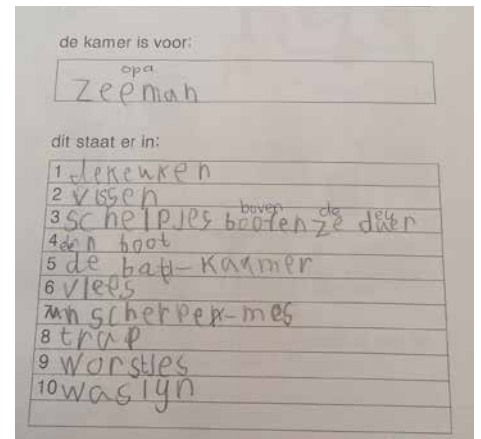 de kamer is voor:
opa
zeeman
dit staat er in:
1 dekeuken
2 vissen
boven de deur
3 schelpjes booten ze duur
4 een boot
5 de bad-kaamer
6 vlees
7 un scherpen-mes
8 trap
9 worstjes
10 waslyn